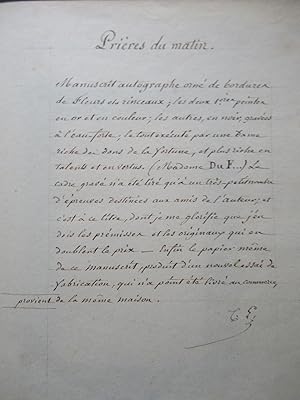 Prières du matin.
Manuscrit autographe orné de bordures
de fleurs et rinceaux; les deux 1ères peintes
en or et en couleur; les autres, en noir, gravées
à l'eau-forte; le tout exécuté par une Dame
riche des dons de la fortune, et plus riche en
talents et en vertus. (Madame Du F...) Le
cadre gravé n'a été tiré qu'à un très-petit nombre
d'épreuves destinées aux amis de l'auteur; et
c'est à ce titre, dont je me glorifie que j'en
dois les prémisses et les originaux qui en
doublent le prix — Enfin le papier même
de ce manuscrit, produit d'un nouvel essai de
fabrication, qui n'a point été livré au commerce,
provient de la même maison.